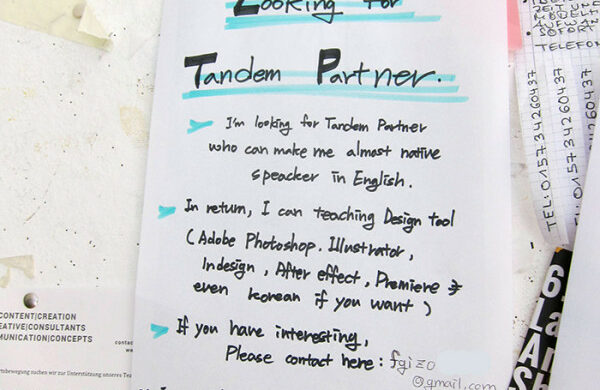 Looking for
Tandem Partner.
I'm looking for Tandem Partner
who can make me almost native
speacker in English.
In return, I can teaching Design tool
(Adobe Photoshop. Illustrator,
Indesign, After effect, Premiere
even korean if you want)
If you have interesting,
Please contact here:
@gmail.com
CONTENT|CREATION
EATIVE|CONSULTANTS
MUNICATION|CONCEPTS
SOFORT
TELEFON
TEL: 0157 34260437
0157 34260437